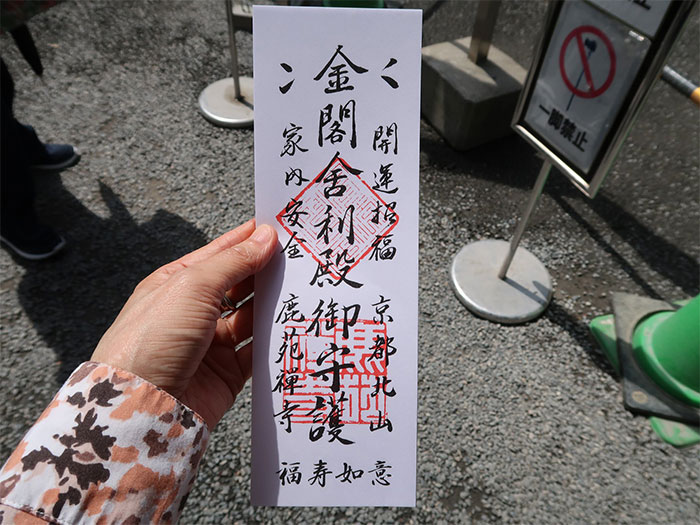 開運招福
京都北山
金閣舎利殿御守護
家内安全
鹿苑禅寺
福寿如意
一脚禁止